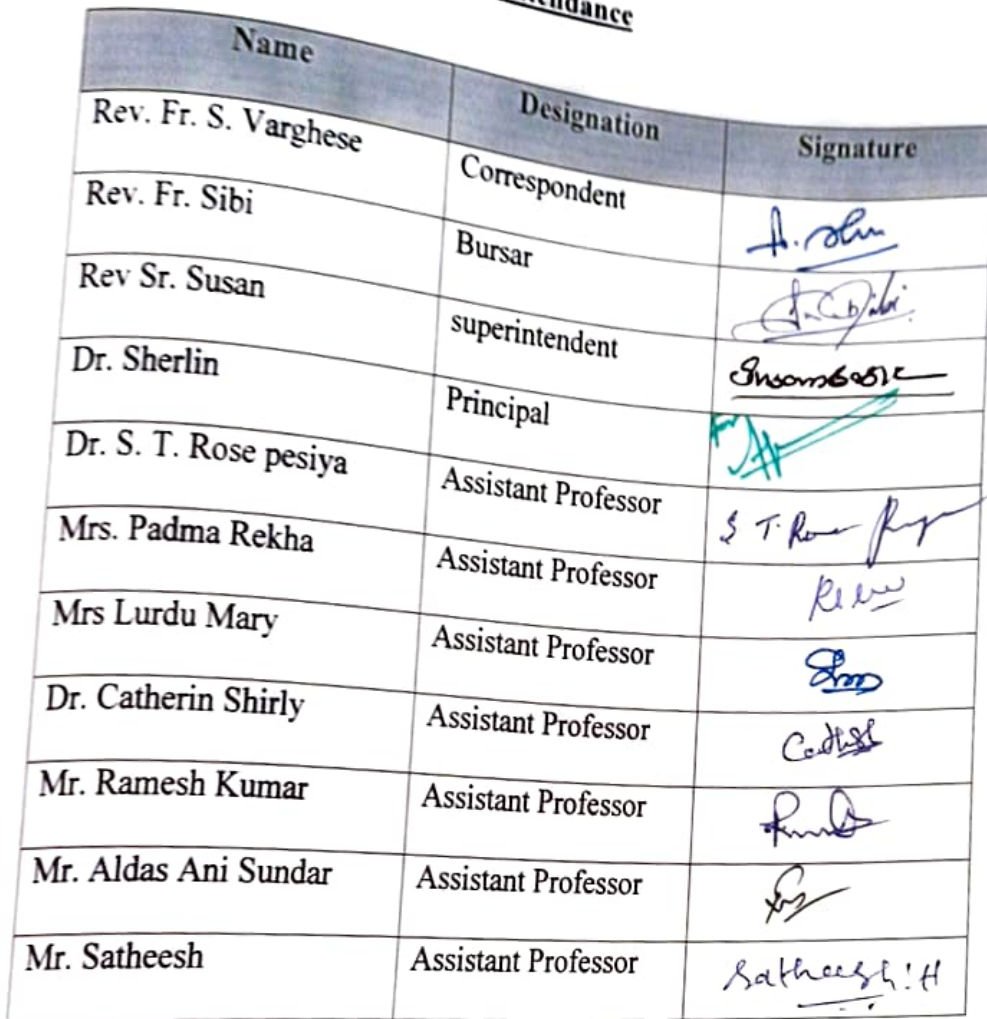 Name Designation Signature
Rev. Fr. S. Varghese Correspondent
Rev. Fr. Sibi Bursar
Rev Sr. Susan superintendent
Dr. Sherlin Principal
Dr. S. T. Rose pesiya Assistant Professor S T. Rose
Mrs. Padma Rekha Assistant Professor
Mrs Lurdu Mary Assistant Professor
Dr. Catherin Shirly Assistant Professor
Mr. Ramesh Kumar Assistant Professor
Mr. Aldas Ani Sundar Assistant Professor
Mr. Satheesh Assistant Professor Satheesh.H